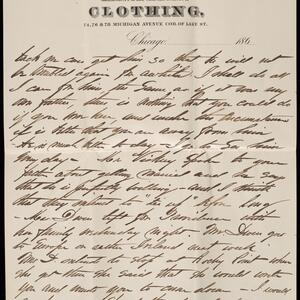 CLOTHING,
74,76 & 78 MICHIGAN AVENUE COR. OF LAKE ST.
Chicago 186
back you can get him so that he will not
be troubled again for awhile I shall do all
I can for him the same as if it was my
own father there is nothing that you could do
if you were here and under the circumstances
it is better that you are away from him
He is much better to day I go to see him
every day
father about getting married and he says
that he is perfectly willing and I think
that they intend to "tie up" before long
left for with
his family Wednesday night. Mr goes
to Europe on next week
Mr intends to stop at Rocky Point when
she get there she said that she would write
you and wants you to come down I would